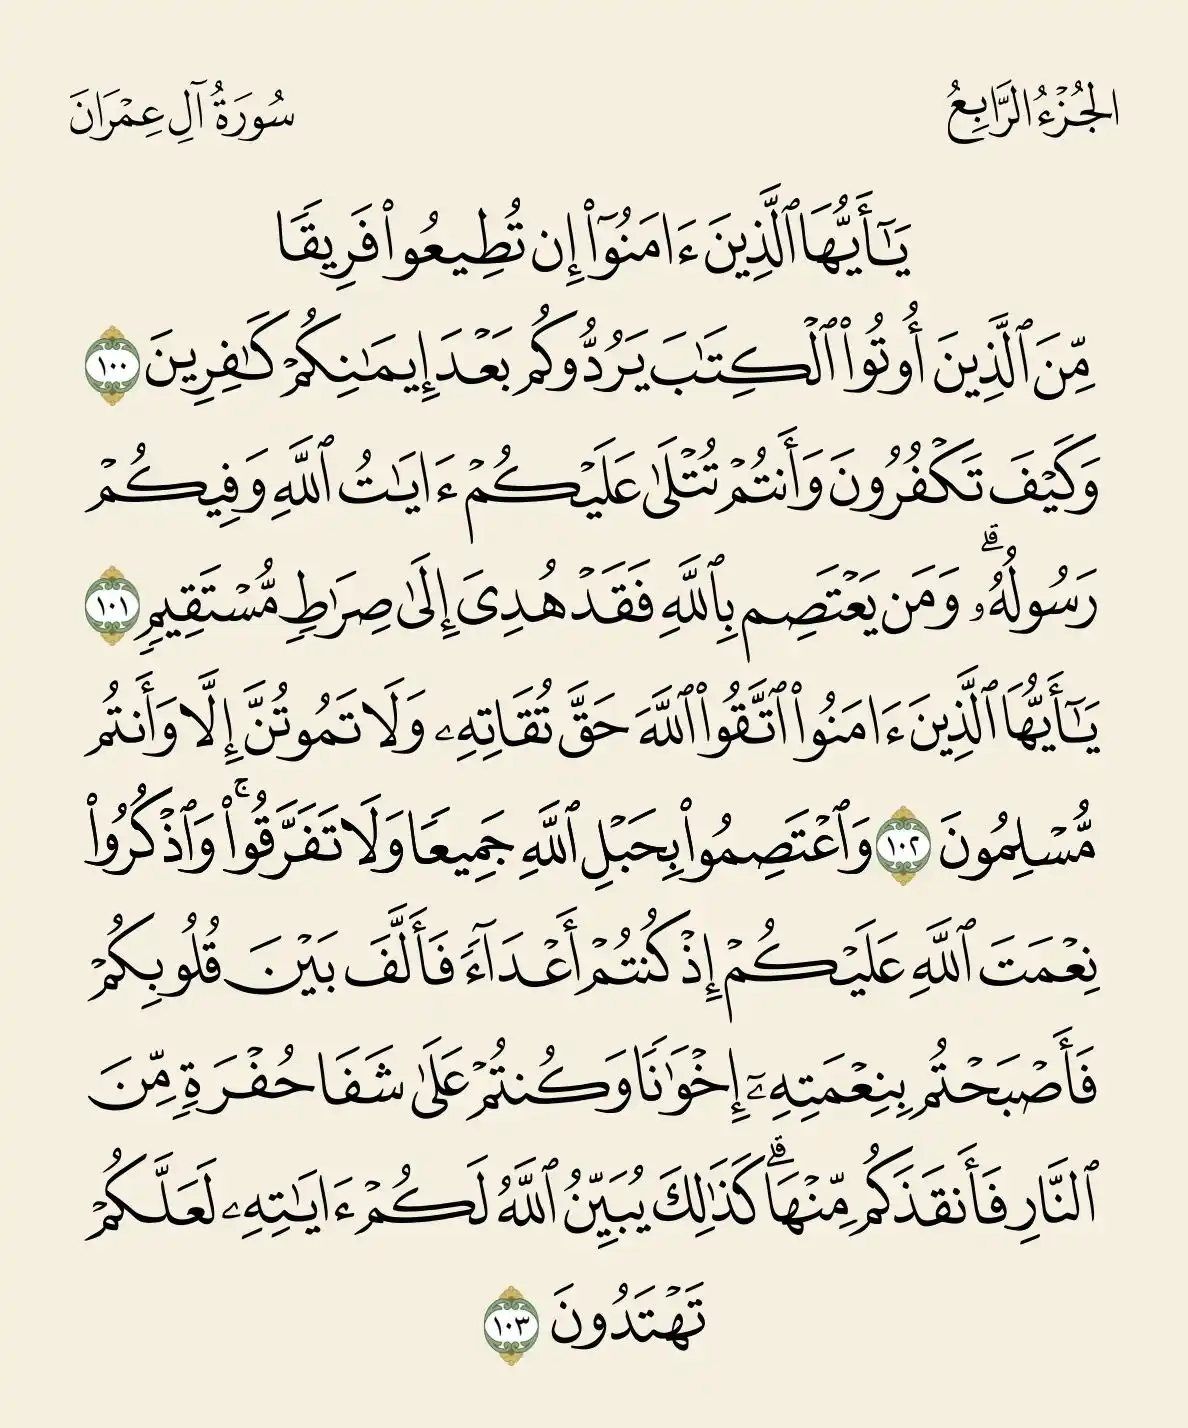 الجُزْءُ الرَّابِعُ
سُورَةُ آلِ عِمْرَانَ
يَـٰٓأَيُّهَا ٱلَّذِينَ ءَامَنُوٓا۟ إِن تُطِيعُوا۟ فَرِيقًا
مِّنَ ٱلَّذِينَ أُوتُوا۟ ٱلْكِتَـٰبَ يَرُدُّوكُم بَعْدَ إِيمَـٰنِكُمْ كَـٰفِرِينَ ١٠٠
وَكَيْفَ تَكْفُرُونَ وَأَنتُمْ تُتْلَىٰ عَلَيْكُمْ ءَايَـٰتُ ٱللَّهِ وَفِيكُمْ
رَسُولُهُۥ ۗ وَمَن يَعْتَصِم بِٱللَّهِ فَقَدْ هُدِىَ إِلَىٰ صِرَٰطٍ مُّسْتَقِيمٍ ١٠١
يَـٰٓأَيُّهَا ٱلَّذِينَ ءَامَنُوا۟ ٱتَّقُوا۟ ٱللَّهَ حَقَّ تُقَاتِهِۦ وَلَا تَمُوتُنَّ إِلَّا وَأَنتُم
مُّسْلِمُونَ ١٠٢ وَٱعْتَصِمُوا۟ بِحَبْلِ ٱللَّهِ جَمِيعًا وَلَا تَفَرَّقُوا۟ ۚ وَٱذْكُرُوا۟
نِعْمَتَ ٱللَّهِ عَلَيْكُمْ إِذْ كُنتُمْ أَعْدَآءً فَأَلَّفَ بَيْنَ قُلُوبِكُمْ
فَأَصْبَحْتُم بِنِعْمَتِهِۦٓ إِخْوَٰنًا وَكُنتُمْ عَلَىٰ شَفَا حُفْرَةٍ مِّنَ
ٱلنَّارِ فَأَنقَذَكُم مِّنْهَا ۗ كَذَٰلِكَ يُبَيِّنُ ٱللَّهُ لَكُمْ ءَايَـٰتِهِۦ لَعَلَّكُمْ
تَهْتَدُونَ ١٠٣